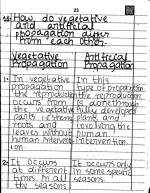 23
How do vegetative
and artificial
propagation differ
from each other.
Vegetative Propagation
Artifical Propagation
1. In vegetative
propagation
the reproduction
occurs from
the vegetative
parts i.e stem,
roots and
leaves without
human intervention
In this
type of propagation
the reproduction
is done through
fully developed
plants and
involving the
human
intervention.
2. It occurs
at different
times in all
the seasons
It occurs only
in some specific
seasons.